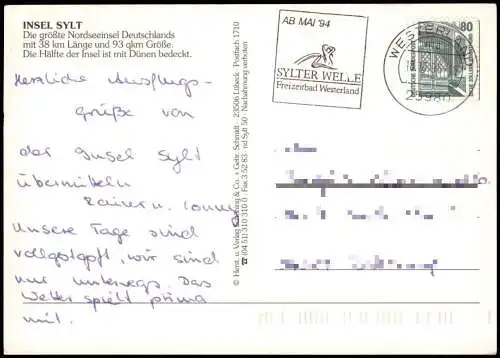 INSEL SYLT
Die größte Nordseeinsel Deutschlands
mit 38 km Länge und 93 qkm Größe.
Die Hälfte der Insel ist mit Dünen bedeckt.
Herzliche Ausflugs-
grüße von
der Insel Sylt
übermitteln
Rainer u.
Unsere Tage sind
vollgestopft, wir sind
nur unterwegs. Das
Wetter spielt prima
mit.
© Herst. u. Verlag & Co. + Gebr. Schmidt, 23506 Lübeck Postfach 1710
☎ (04 51) 310 310 Fax 3 52 83 Sylt 50 · Nachahmung verboten
AB MAI '94
SYLTER WELLE
Freizeitbad Westerland
WESTERLAND
25980
80